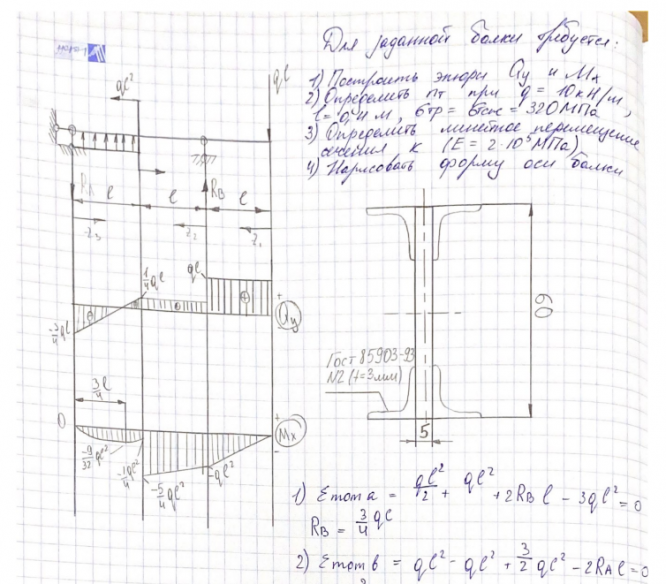 Для заданной балки требуется:
1) Построить эпюры Qy и Mx
2) Определить nт при q = 10кН/м,
l = 0,4 м, σтр = σтсж = 320МПа
3) Определить линейное перемещение
сечения к (E = 2·10⁵МПа)
4) Нарисовать форму оси балки
ql²
ql
RA
l
RB
l
l
z₃
z₂
z₁
1/4 ql
ql
+
Qy
-3/4 ql
3/4 l
0
+
Mx
-
-9/32 ql²
-1/4 ql²
-5/4 ql²
-ql²
60
Гост 85903-93
N2 (t=3мм)
5
1) Σmom a = ql²/2 + ql² + 2RB l - 3ql² = 0
RB = 3/4 ql
2) Σmom b = ql² - ql² + 3/2 ql² - 2RA l = 0